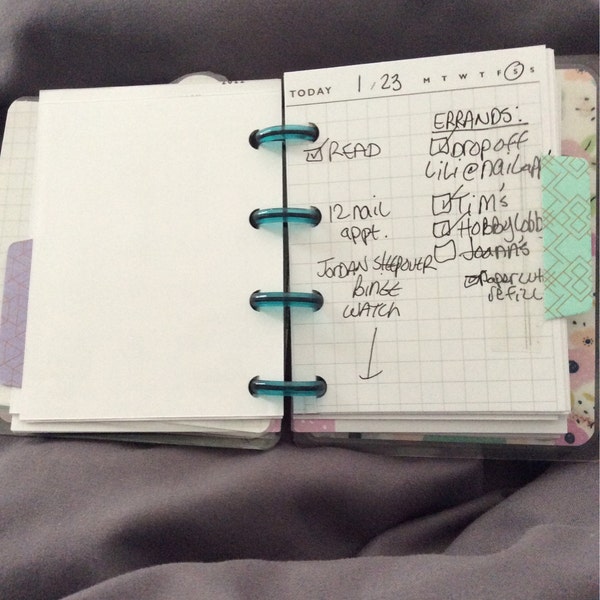 TODAY 1/23 M T W T F S S
READ
12 nail
appt.
JORDAN SLEEPOVER
BINGE
WATCH
ERRANDS:
DROP OFF
LiLi @ nail
Tim's
Hobby Lobb
Joann's
paper cut
refill